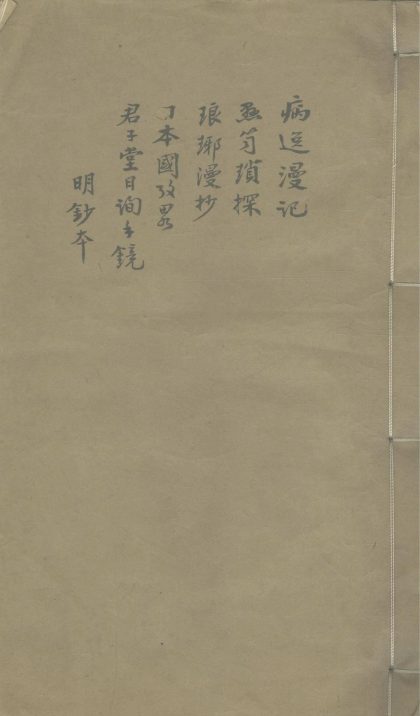 病逸漫记
蓬窗琐探
琅琊漫抄
日本國攷畧
君子堂日询手鏡
明鈔本